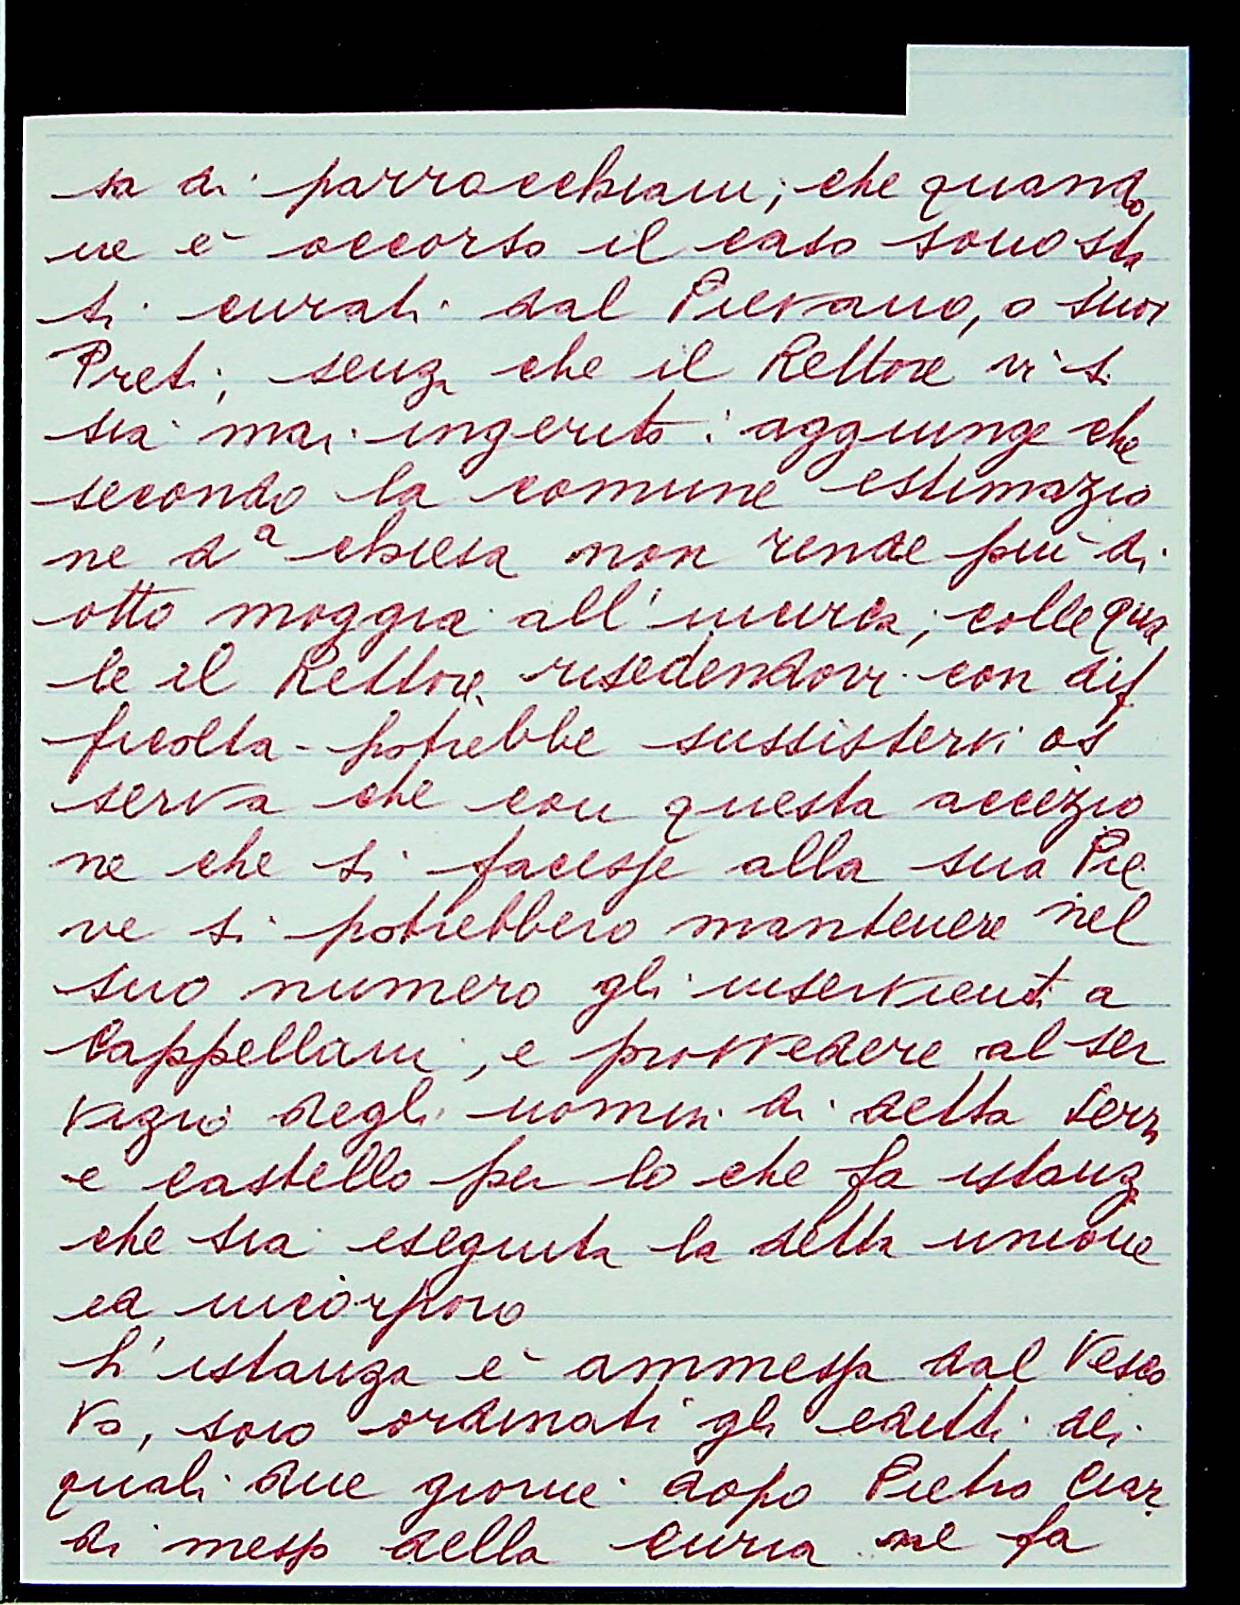 sa di parrocchiani; che quando
ne è occorso il caso sono sta
ti curati dal Pievano, o suoi
Preti, senza che il Rettore vi si
sia mai ingerito: aggiunge che
secondo la comune estimazio
ne d.ª chiesa non rende più di
otto moggia all'incirca; colle qua
le il Rettore risedendovi con dif
ficolta potrebbe sussistervi os
serva che con questa accezio
ne che si facesse alla sua Pie
ve si potrebbero mantenere nel
suo numero gli inservienti a
Cappellani, e provvedere al ser
vizio degli uomini di detta terra
e castello per lo che fa istanza
che sia eseguita la detta unione
ed incorporo
L'istanza è ammessa dal Vesco
vo, sono ordinati gli editti dei
quali due giorni dopo Pietro Ciar
di messo della Curia ne fa